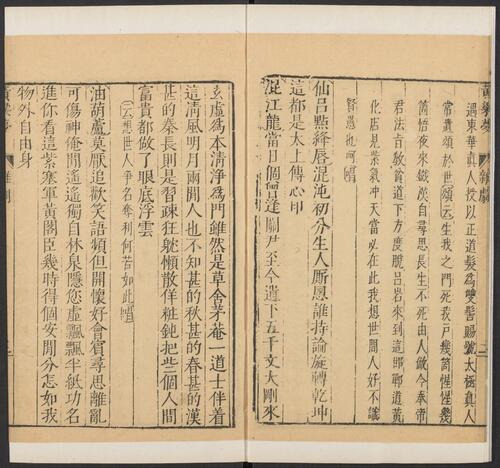 黃粱夢 雜劇 二
遇東華眞人授以正道髮爲雙髻賜號太極眞人
常書頌於世頌云生我之門死我戶幾箇惺惺幾
箇悟夜來鐵漢自尋思長生不死由人做今奉帝
君法旨教貧道下方度脫呂岩來到這邯鄲道黃
化店見紫氣冲天當必在此我想世間人好不識
賢愚也呵唱
仙呂點絳唇混沌初分生人厮恩誰持論旋轉乾坤
這都是太上傳心印
混江龍當日個曾逢關尹至今遺下五千文大剛來
玄虛爲本清淨爲門雖然是草舍茅菴一道士伴着
這清風明月兩閒人也不知甚的秋甚的春甚的漢
甚的秦長則是習疎狂躭懶散佯粧鈍把些個人間
富貴都做了眼底浮雲
云想世人爭名奪利何苦如此唱
油葫蘆莫厭追歡笑語頻但開懷好會賓尋思離亂
可傷神俺閒遙遙獨自林泉隱您虛飄飄半紙功名
進你看這紫塞軍黃閣臣幾時得個安閒分怎如我
物外自由身